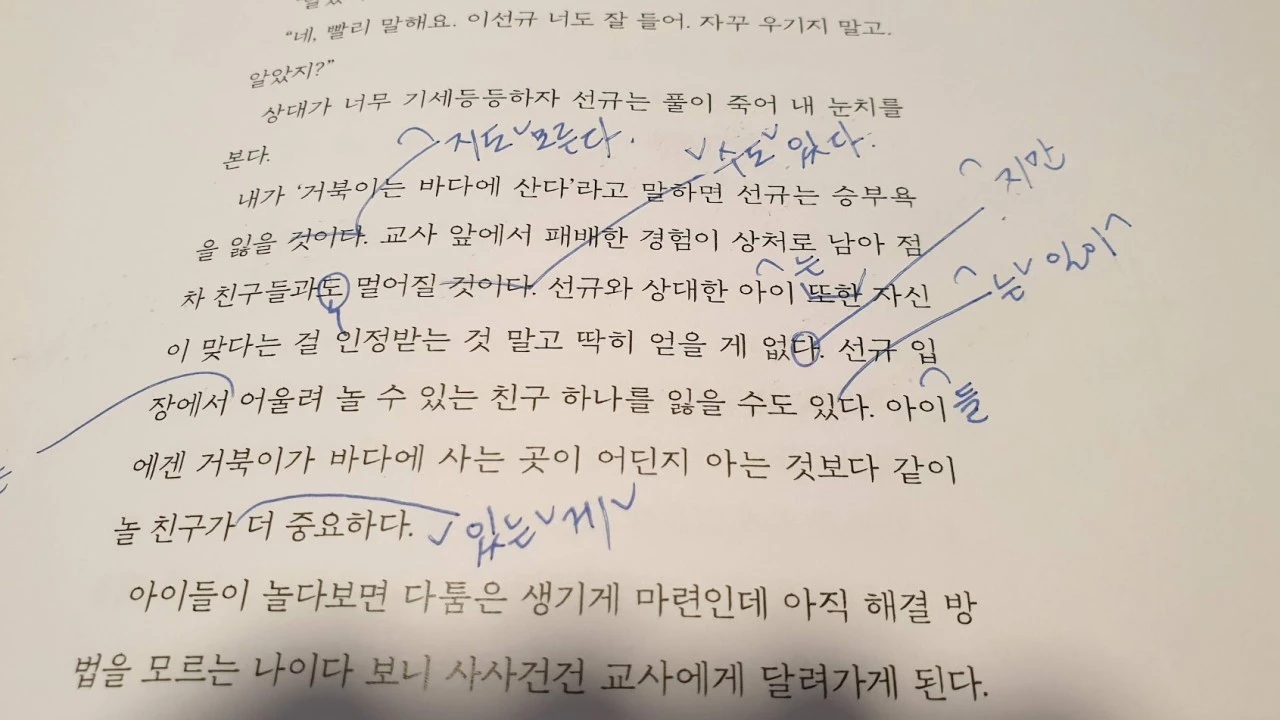 "네, 빨리 말해요. 이선규 너도 잘 들어. 자꾸 우기지 말고.
알았지?"
상대가 너무 기세등등하자 선규는 풀이 죽어 내 눈치를
지도 모른다.
수도 있다.
지만
본다.
내가 '거북이는 바다에 산다'라고 말하면 선규는 승부욕
을 잃을 것이다. 교사 앞에서 패배한 경험이 상처로 남아 점
는
는 일이
차 친구들과도 멀어질 것이다. 선규와 상대한 아이 또한 자신
이 맞다는 걸 인정받는 것 말고 딱히 얻을 게 없다. 선규 입
장에서 어울려 놀 수 있는 친구 하나를 잃을 수도 있다. 아이
들
에겐 거북이가 바다에 사는 곳이 어딘지 아는 것보다 같이
놀 친구가 더 중요하다.
있는 게
아이들이 놀다보면 다툼은 생기게 마련인데 아직 해결 방
법을 모르는 나이다 보니 사사건건 교사에게 달려가게 된다.